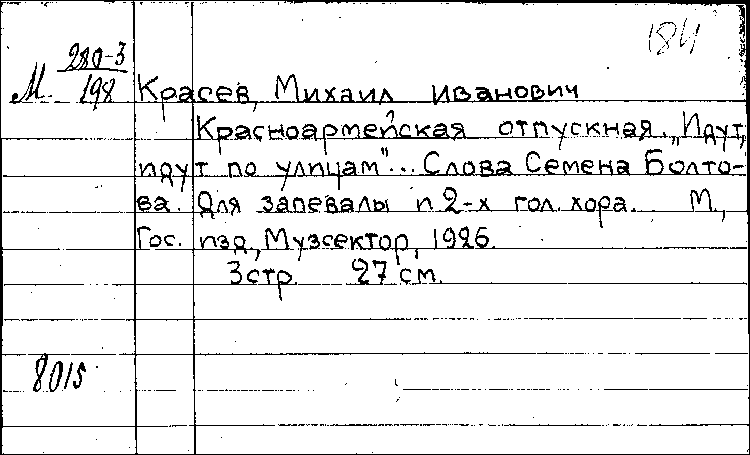 184
М. 280-3
198
Красев, Михаил Иванович
Красноармейская отпускная. „Идут,
идут по улицам"... Слова Семена Болто-
ва. Для запевалы и 2-х гол. хора. М.,
Гос. изд., Музсектор, 1926.
3 стр. 27 см.
8015